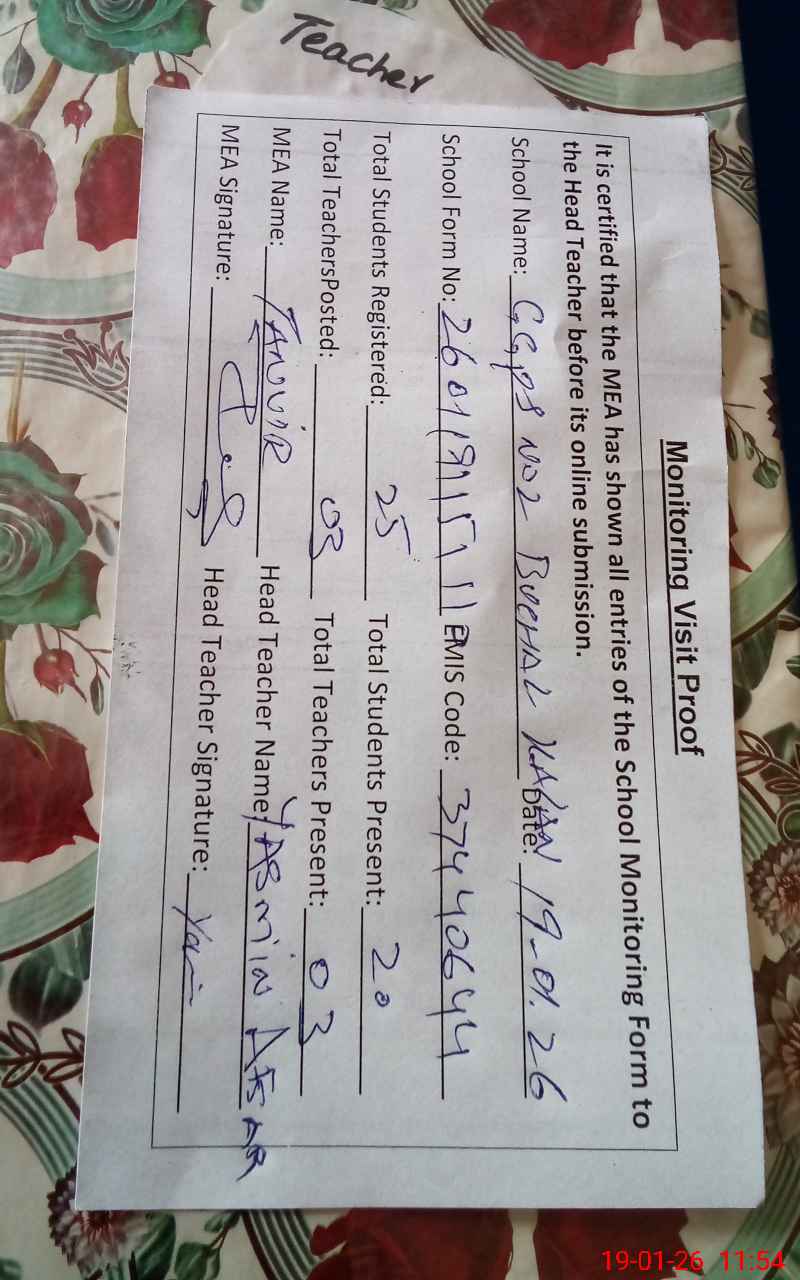 Teacher
Monitoring Visit Proof
It is certified that the MEA has shown all entries of the School Monitoring Form to
the Head Teacher before its online submission.
School Name: GGPS NO2 BUCHAL KALAN Date: 19-01.26
School Form No: EMIS Code: 37440644
Total Students Registered: 25 Total Students Present: 20
Total TeachersPosted: 03 Total Teachers Present: 03
MEA Name: TANVIR Head Teacher Name: YASMIN AFSAR
MEA Signature: Head Teacher Signature:
19-01-26 11:54